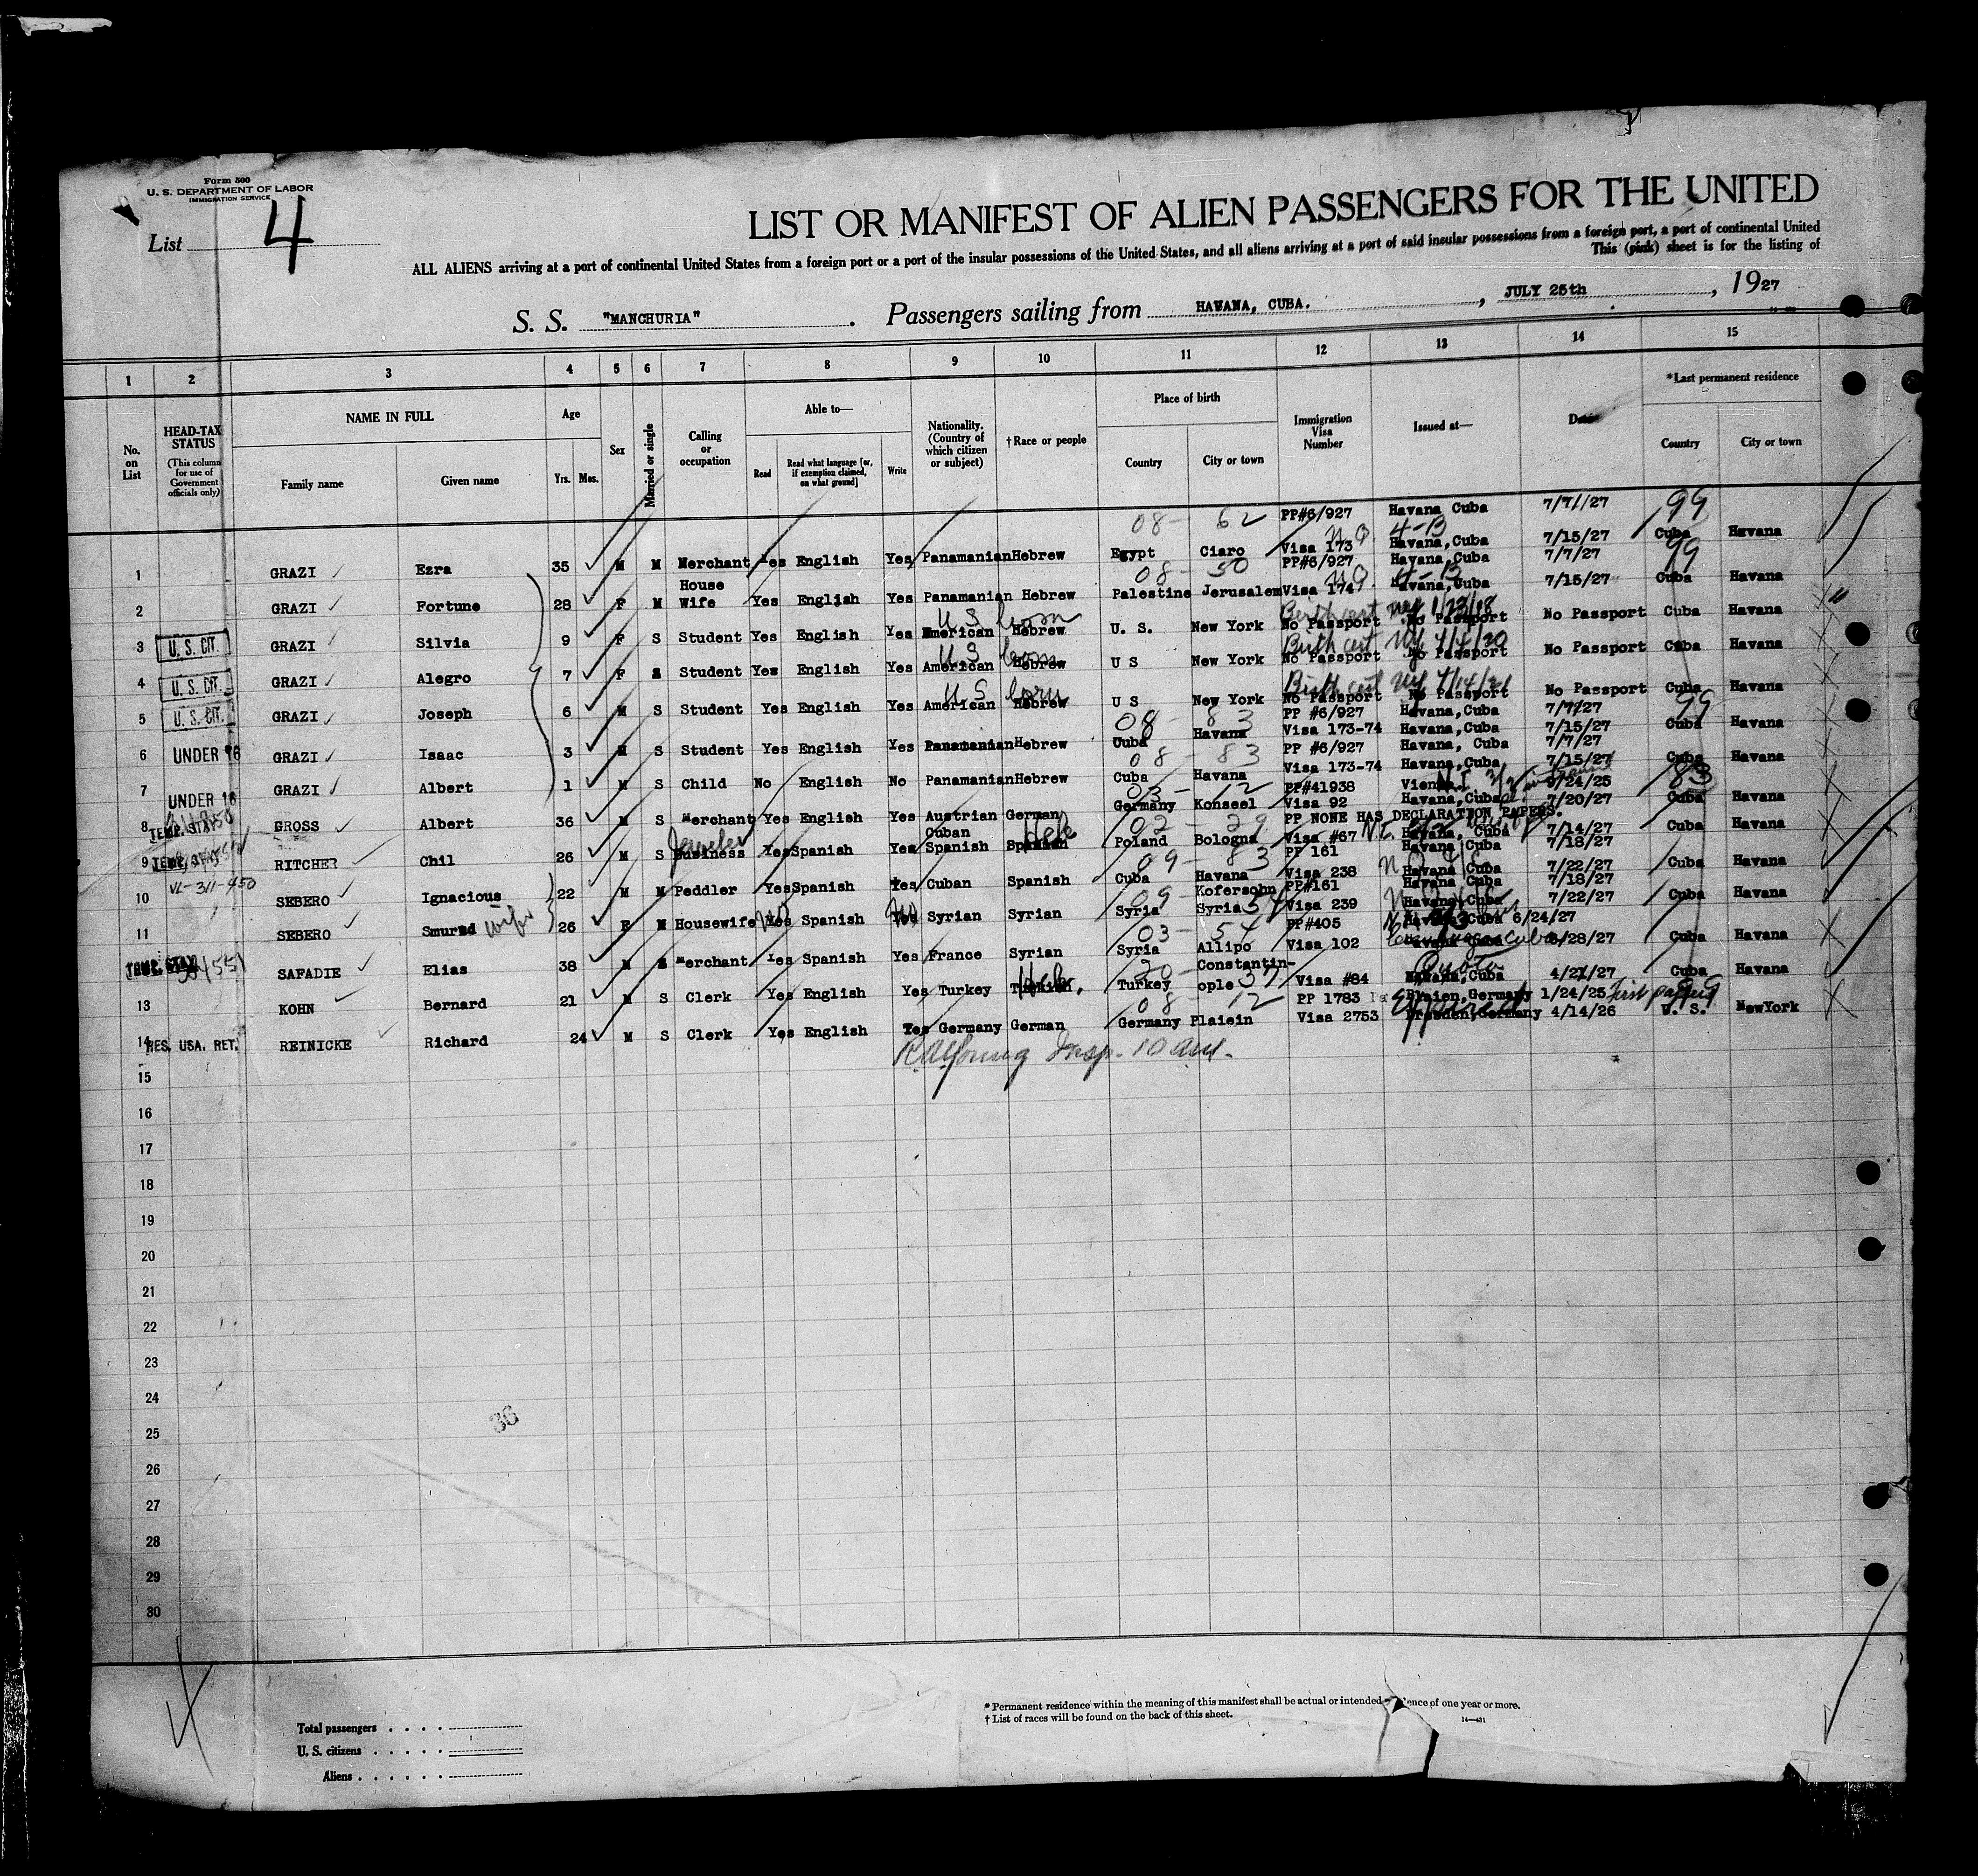 Form 500
U. S. DEPARTMENT OF LABOR
IMMIGRATION SERVICE
List 4
LIST OR MANIFEST OF ALIEN PASSENGERS FOR THE UNITED
ALL ALIENS arriving at a port of continental United States from a foreign port or a port of the insular possessions of the United States, and all aliens arriving at a port of said insular possessions from a foreign port, a port of continental United
This (pink) sheet is for the listing of
S. S. "MANCHURIA" . Passengers sailing from HAVANA, CUBA. , JULY 25th , 1927
1 2 3 4 5 6 7 8 9 10 11 12 13 14 15
No. on List
HEAD-TAX STATUS (This column for use of Government officials only)
NAME IN FULL
Family name Given name
Age
Yrs. Mos.
Sex
Married or single
Calling or occupation
Able to—
Read Read what language [or, if exemption claimed, on what ground] Write
Nationality. (Country of which citizen or subject)
†Race or people
Place of birth
Country City or town
Immigration Visa Number
Issued at—
Date
*Last permanent residence
Country City or town
08- 62 PP#6/927 Havana Cuba 7/7//27 99
1 GRAZI Ezra 35 M M Merchant Yes English Yes Panamanian Hebrew Egypt Ciaro Visa 173 Havana,Cuba 7/15/27 Cuba Havana
08- 50 PP#6/927 Havana,Cuba 7/7/27 99
2 GRAZI Fortune 28 F M House Wife Yes English Yes Panamanian Hebrew Palestine Jerusalem Visa 174 Havana,Cuba 7/15/27 Cuba Havana
U S born Birth cert NY 1/23/18
3 U. S. CIT. GRAZI Silvia 9 F S Student Yes English Yes American Hebrew U. S. New York No Passport No Passport No Passport Cuba Havana
U S born Birth cert NY 4/4/20
4 U. S. CIT. GRAZI Alegro 7 F S Student Yes English Yes American Hebrew U S New York No Passport No Passport No Passport Cuba Havana
U S born Birth cert NY 4/14/21
5 U. S. CIT. GRAZI Joseph 6 M S Student Yes English Yes American Hebrew U S New York No Passport No Passport No Passport Cuba Havana
08- 83 PP #6/927 Havana,Cuba 7/7/27 99
6 UNDER 16 GRAZI Isaac 3 M S Student Yes English Yes Panamanian Hebrew Cuba Havana Visa 173-74 Havana,Cuba 7/15/27 Cuba Havana
08- 83 PP #6/927 Havana, Cuba 7/7/27
7 UNDER 16 GRAZI Albert 1 M S Child No English No Panamanian Hebrew Cuba Havana Visa 173-74 Havana,Cuba 7/15/27 Cuba Havana
03- 12 PP#41938 Vienna 9/24/25 83
8 TEMP. STAY GROSS Albert 36 M S Merchant Yes English Yes Austrian German Germany Konseel Visa 92 Havana,Cuba 7/20/27 Cuba Havana
Jeweler Cuban Heb 02- 29 PP NONE HAS DECLARATION PAPERS.
9 TEMP. STAY RITCHER Chil 26 M S Business Yes Spanish Yes Spanish Spanish Poland Bologna Visa #67 Havana, Cuba 7/14/27 Cuba Havana
VL-311-450 09- 83 PP 161 Havana,Cuba 7/18/27
10 SEBERO Ignacious 22 M M Peddler Yes Spanish Yes Cuban Spanish Cuba Havana Visa 238 Havana Cuba 7/22/27 Cuba Havana
09- Kofersohn PP#161 Havana Cuba 7/18/27
11 SEBERO Smurad wife 26 F M Housewife Yes No Spanish Yes No Syrian Syrian Syria Syria 54 Visa 239 Havana,Cuba 7/22/27 Cuba Havana
03- 54 PP#405 Havana,Cuba 6/24/27
TEMP. STAY SAFADIE Elias 38 M S Merchant Yes Spanish Yes France Syrian Syria Allipo Visa 102 6/28/27 Cuba Havana
Heb. 20- Constantin- Quota
13 KOHN Bernard 21 M S Clerk Yes English Yes Turkey Turkey ople 37 Visa #84 Havana,Cuba 4/21/27 Cuba Havana
08- 12 PP 1783 Germany 1/24/25 First papers 99
14 RES. USA. RET. REINICKE Richard 24 M S Clerk Yes English Yes Germany German Germany Plaiein Visa 2753 Dresden,Germany 4/14/26 U. S. NewYork
Insp. 10 am.
15
16
17
18
19
20
21
22
23
24
36
25
26
27
28
29
30
Total passengers
U. S. citizens
Aliens
* Permanent residence within the meaning of this manifest shall be actual or intended of one year or more.
† List of races will be found on the back of this sheet.
14—431